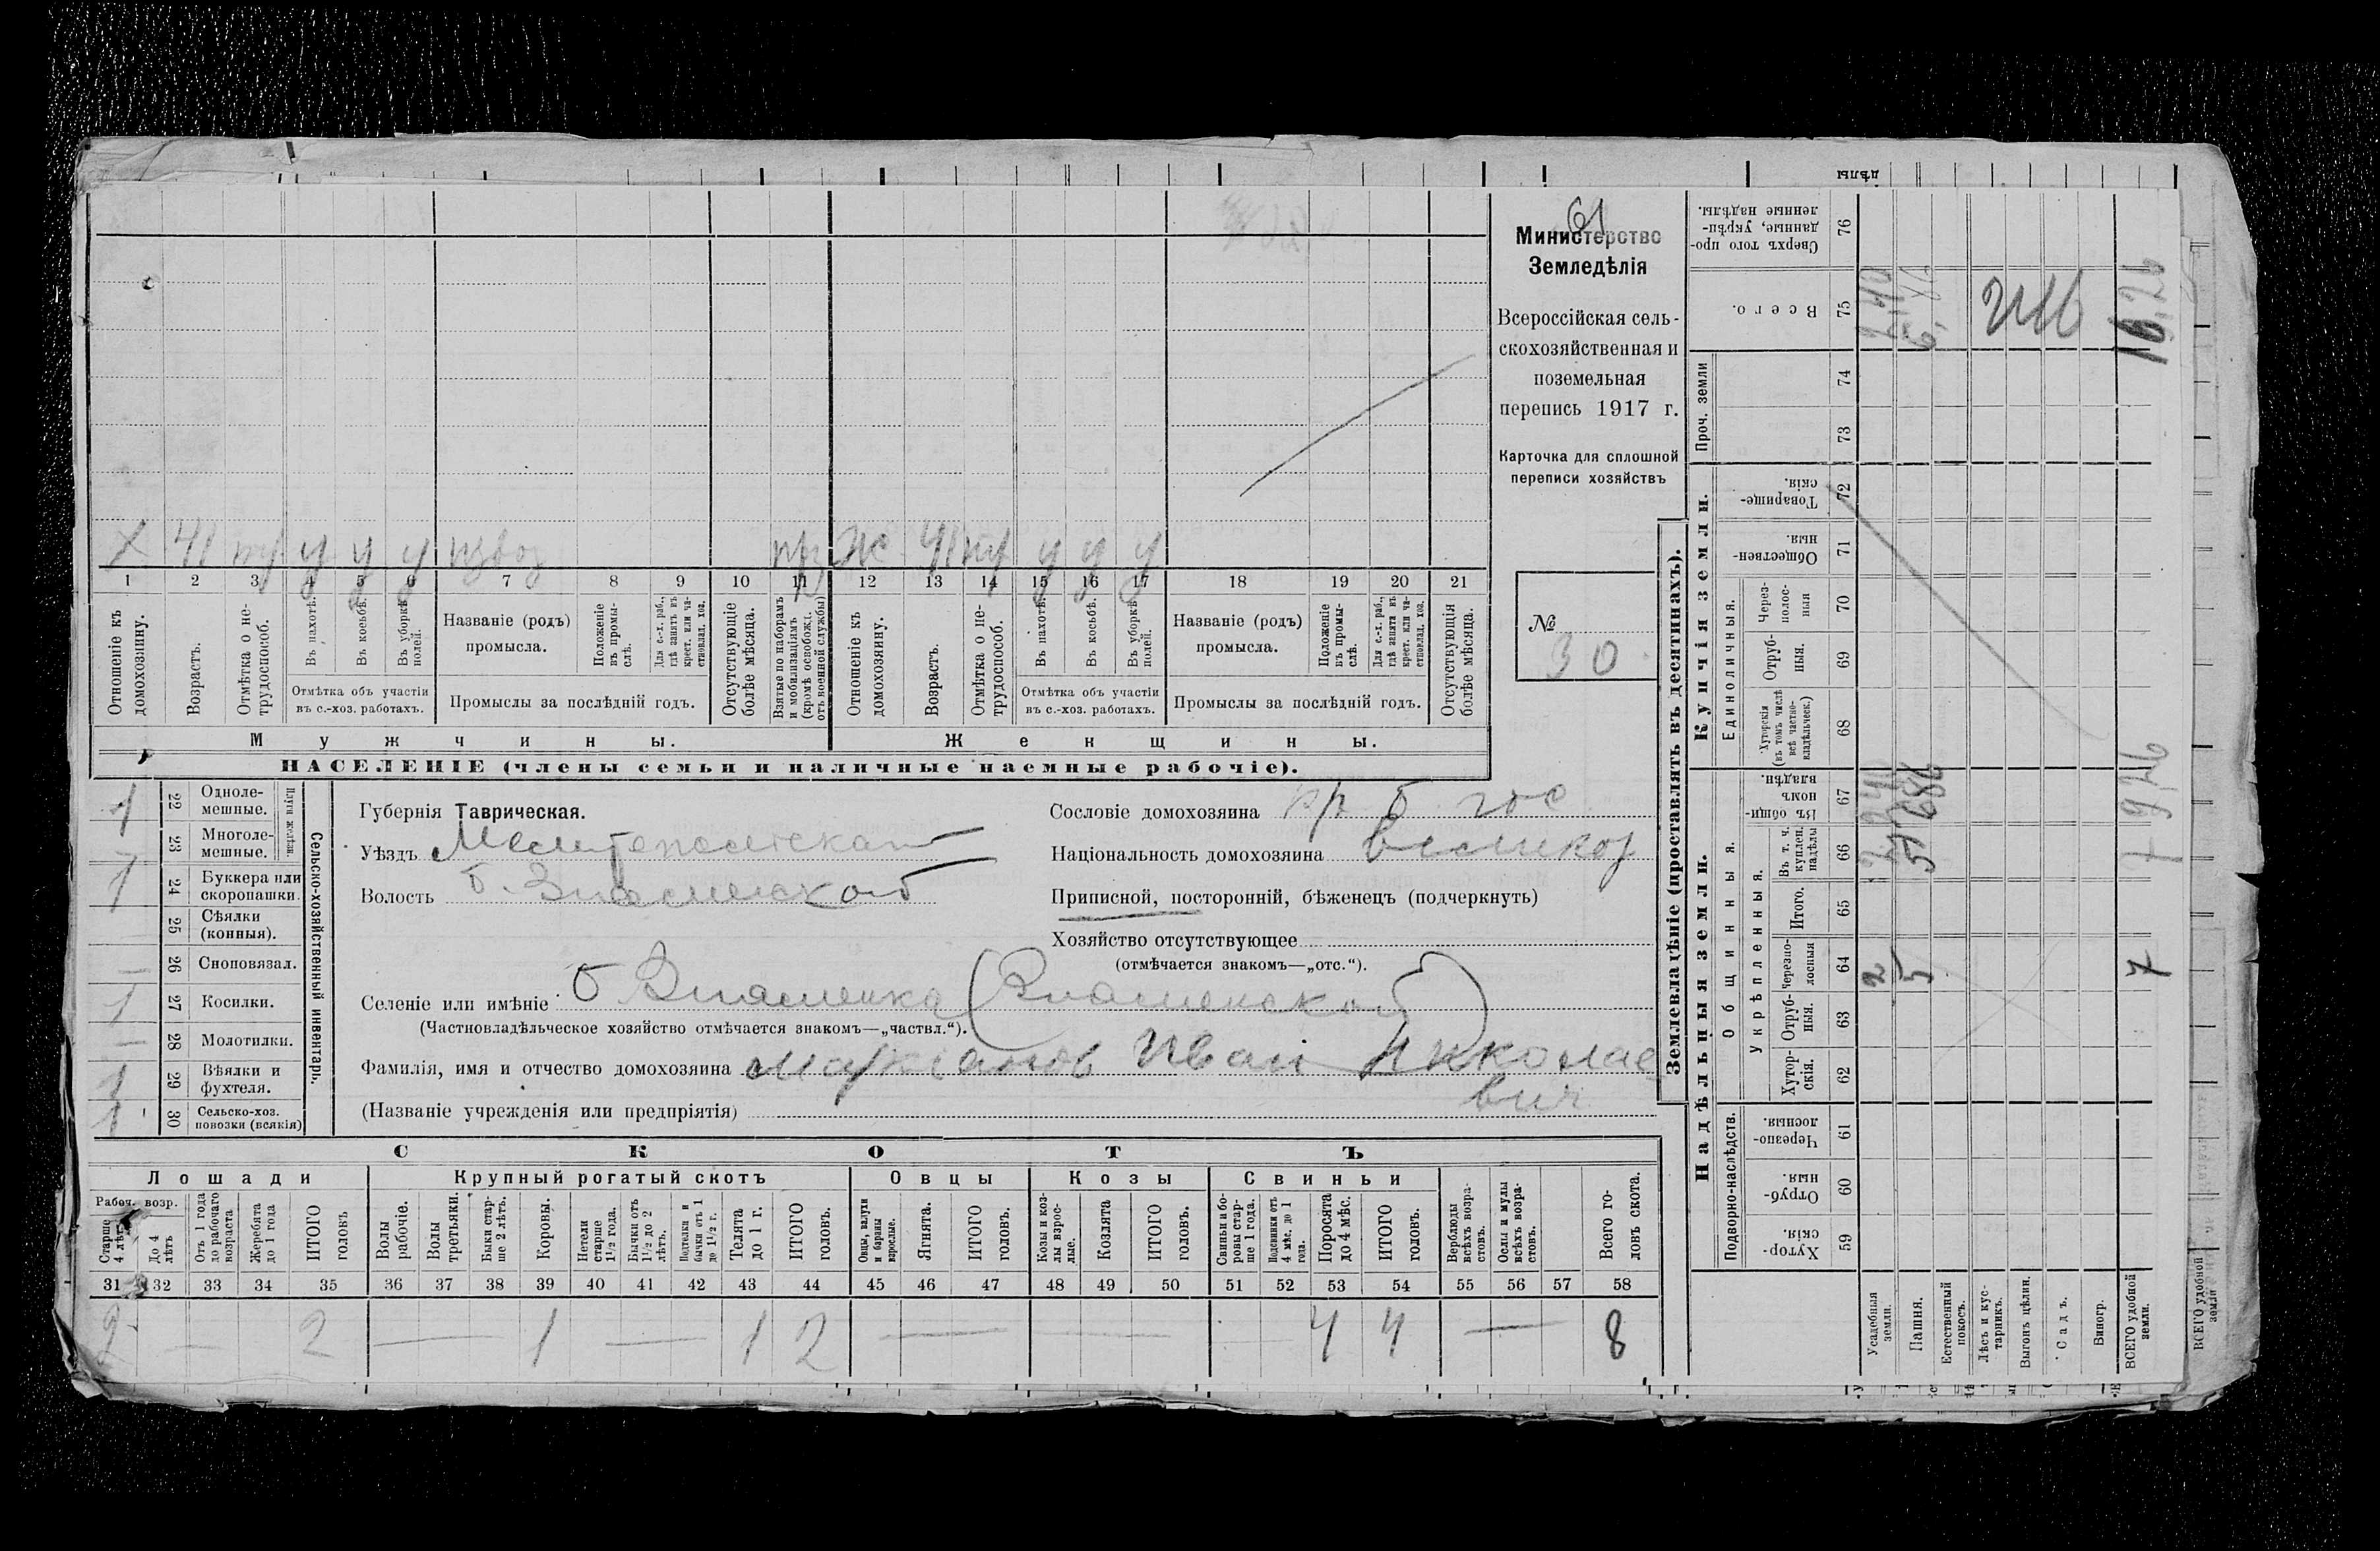 61
Министерство
Земледѣлія
Всероссійская сель-
скохозяйственная и
поземельная
перепись 1917 г.
Карточка для сплошной
переписи хозяйствъ
№
30
Х 41 у у у извоз Ж 41 у у у
1 2 3 4 5 6 7 8 9 10 11 12 13 14 15 16 17 18 19 20 21
Отношеніе къ домохозяину.
Возрастъ.
Отмѣтка о не-трудоспособ.
Въ пахотѣ.
Въ косьбѣ.
Въ уборкѣ полей.
Отмѣтка объ участіи
въ с.-хоз. работахъ.
Названіе (родъ)
промысла.
Положеніе въ промы-слѣ.
Для с.-х. раб., гдѣ занятъ въ крест. или ча-стновлад. хоз.
Промыслы за послѣдній годъ.
Отсутствующіе болѣе мѣсяца.
Взятые по наборамъ и мобилизаціямъ (кромѣ освобожд. отъ военной службы)
Отношеніе къ домохозяину.
Возрастъ.
Отмѣтка о не-трудоспособ.
Въ пахотѣ.
Въ косьбѣ.
Въ уборкѣ полей.
Отмѣтка объ участіи
въ с.-хоз. работахъ.
Названіе (родъ)
промысла.
Положеніе въ промы-слѣ.
Для с.-х. раб., гдѣ занята въ крест. или ча-стновлад. хоз.
Промыслы за послѣдній годъ.
Отсутствующія болѣе мѣсяца.
Мужчины. Женщины.
НАСЕЛЕНІЕ (члены семьи и наличные наемные рабочіе).
Сельско-хозяйственный инвентарь.
Плуги желѣзн.
1 22 Одноле-мешные.
23 Многоле-мешные.
1 24 Буккера или скоропашки.
25 Сѣялки (конныя).
— 26 Сноповязал.
1 27 Косилки.
— 28 Молотилки.
1 29 Вѣялки и фухтеля.
1 30 Сельско-хоз. повозки (всякія)
Губернія Таврическая.
Уѣздъ Мелитопольскай
Волость б. Знаменской
Сословіе домохозяина кр б гос
Національность домохозяина великор
Приписной, посторонній, бѣженецъ (подчеркнуть)
Хозяйство отсутствующее
(отмѣчается знакомъ—„отс.“).
Селеніе или имѣніе б Знаменка (Знаменской)
(Частновладѣльческое хозяйство отмѣчается знакомъ—„частвл.“).
Фамилія, имя и отчество домохозяина Иван Николае
вич
(Названіе учрежденія или предпріятія)
СКОТЪ
Лошади Крупный рогатый скотъ Овцы Козы Свиньи
Рабоч. возр.
Старше 4 лѣтъ
До 4 лѣтъ
Отъ 1 года до рабочаго возраста
Жеребята до 1 года
ИТОГО головъ
Волы рабочіе.
Волы третьяки.
Быки стар-ше 2 лѣтъ.
Коровы.
Нетели старше 1½ года.
Бычки отъ 1½ до 2 лѣтъ.
Подтелки и бычки отъ 1 до 1½ г.
Телята до 1 г.
ИТОГО головъ.
Овцы, валухи и бараны взрослые.
Ягнята.
ИТОГО головъ.
Козы и коз-лы взрос-лые.
Козлята
ИТОГО головъ.
Свиньи и бо-ровы стар-ше 1 года.
Подсвинки отъ 4 мѣс. до 1 года.
Поросята до 4 мѣс.
ИТОГО головъ.
Верблюды всѣхъ возра-стовъ.
Ослы и мулы всѣхъ возра-стовъ.
Всего го-ловъ скота.
31 32 33 34 35 36 37 38 39 40 41 42 43 44 45 46 47 48 49 50 51 52 53 54 55 56 57 58
2 — 2 — 1 — 1 2 — — 4 4 — 8
Землевладѣніе (проставлять въ десятинахъ).
Надѣльныя земли. Купчія земли.
Подворно-наслѣдств.
Общинныя.
Укрѣпленныя.
Единоличныя.
Проч. земли
Хутор-скія. 59
Отруб-ныя. 60
Черезпо-лосныя. 61
Хутор-скія. 62
Отруб-ныя. 63
Черезпо-лосныя 64
Итого. 65
Въ т. ч. куплен. надѣлы 66
Въ общин-номъ владѣн. 67
Хуторскія (въ томъ числѣ всѣ частно-владѣльческ.) 68
Отруб-ныя. 69
Через-полос-ныя 70
Обществен-ныя. 71
Товарище-скія. 72
73
74
Всего. 75
Сверхъ того про-данные, укрѣп-ленные надѣлы. 76
Усадебныя земли. 2
Пашня. 5
Естественный покосъ.
Лѣсъ и кус-тарникъ.
Выгонъ цѣлин.
Садъ.
Виногр.
ВСЕГО удобной земли. 7
ВСЕГО удобной земли
дѣлы